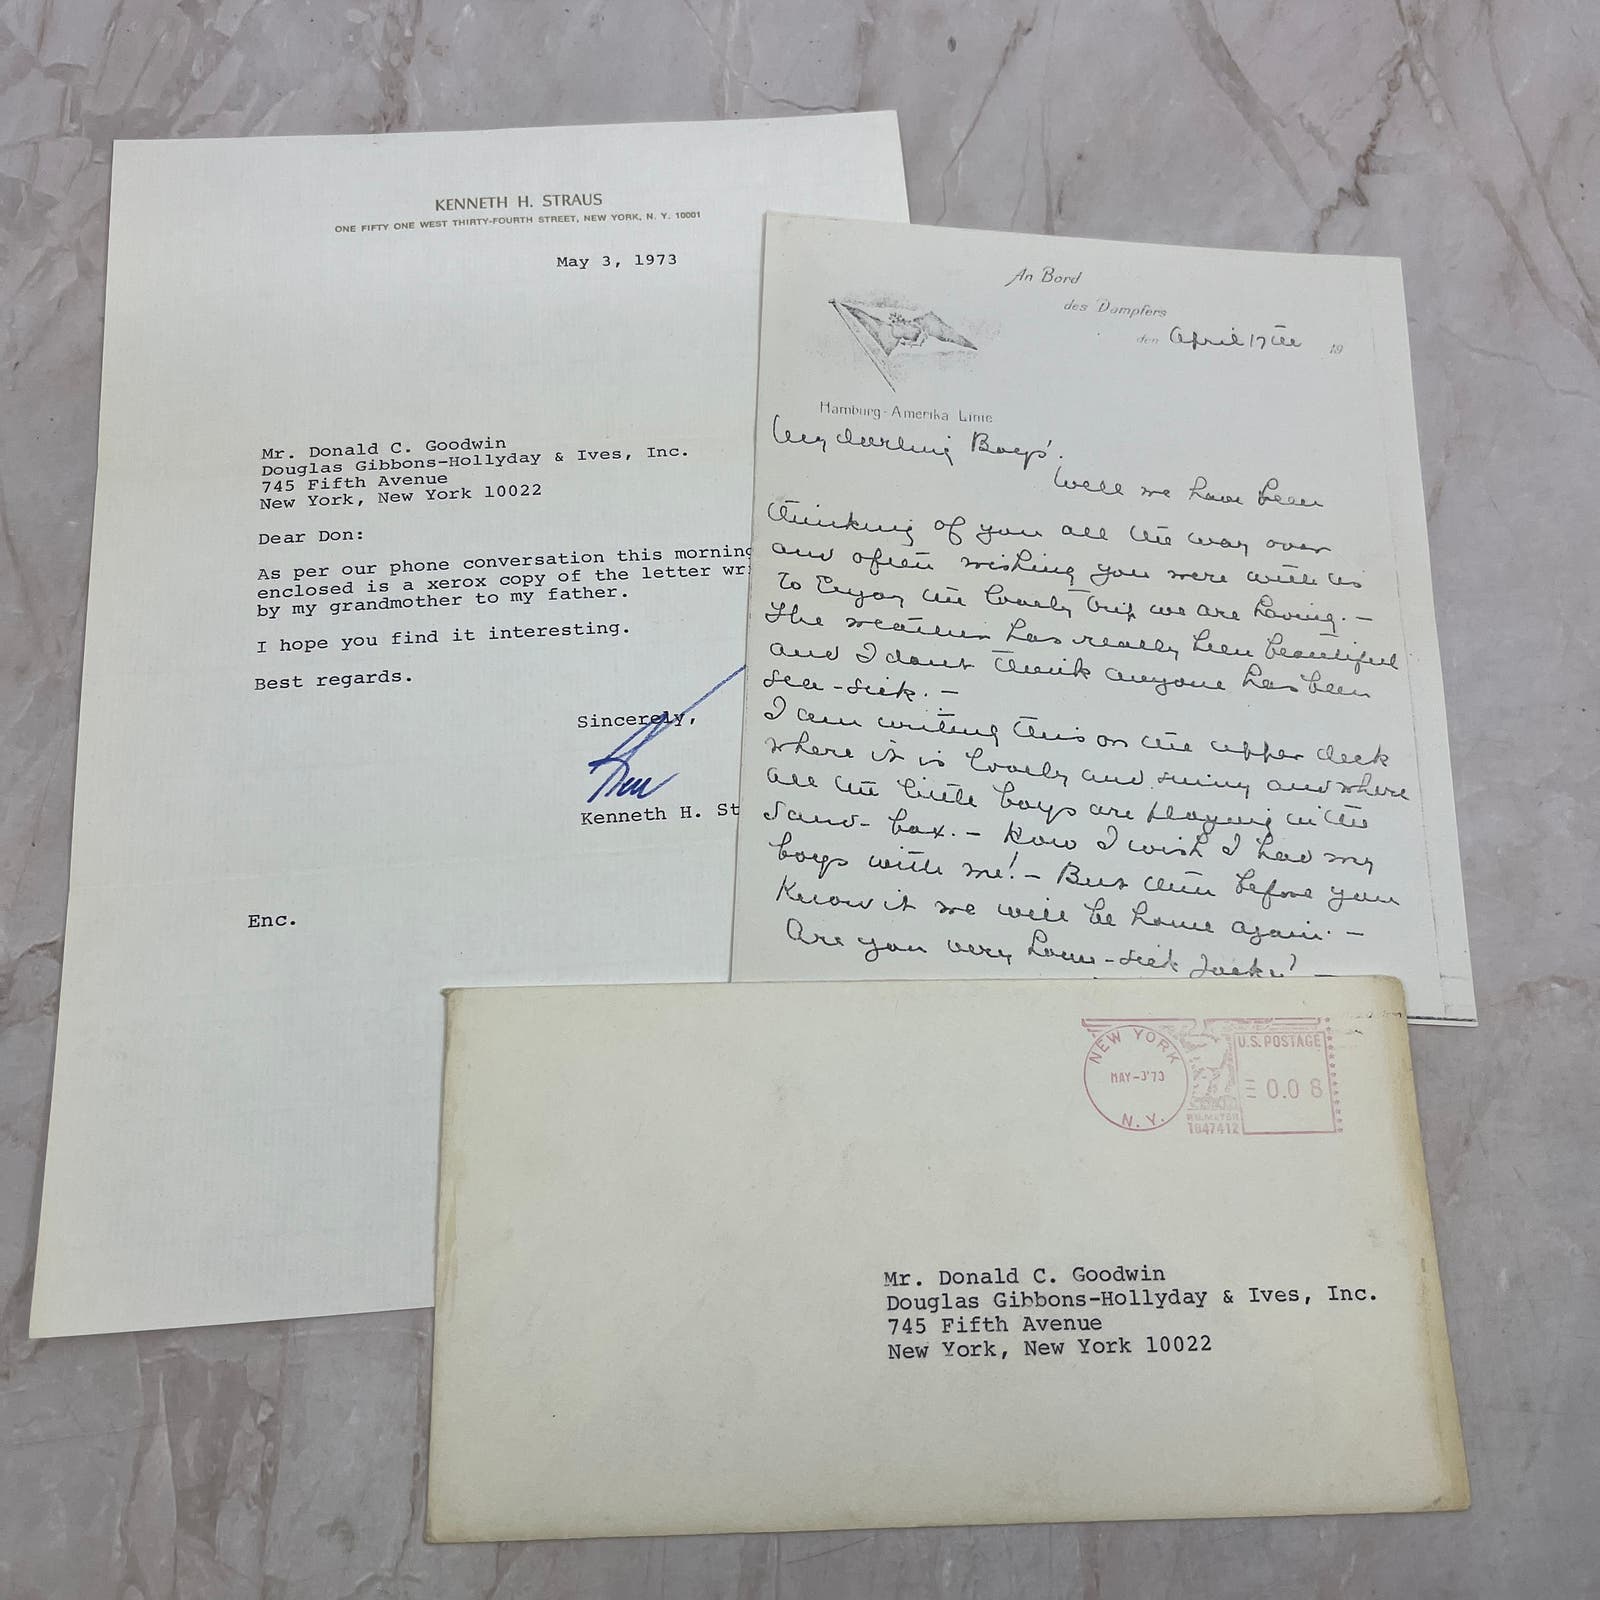 KENNETH H. STRAUS
ONE FIFTY ONE WEST THIRTY-FOURTH STREET, NEW YORK, N. Y. 10001
May 3, 1973
Mr. Donald C. Goodwin
Douglas Gibbons-Hollyday & Ives, Inc.
745 Fifth Avenue
New York, New York 10022
Dear Don:
As per our phone conversation this morning
enclosed is a xerox copy of the letter wr
by my grandmother to my father.
I hope you find it interesting.
Best regards.
Sincerely,
Ken
Kenneth H. St
Enc.
An Bord
des Dampfers
den April 17th 19
Hamburg-Amerika Linie
My darling Boys'.
Well we have been
thinking of you all the way over
and often wishing you were with us
to Enjoy the lovely trip we are having. -
The weather has really been beautiful
and I dont think anyone has been
sea-sick. -
I am writing this on the upper deck
where it is lovely and sunny and where
all the little boys are playing in the
sand-box. - How I wish I had my
boys with me! - But then before you
know it we will be home again. -
Are you very home-sick Jacky? -
NEW YORK
MAY-3'73
N.Y.
P.B. METER
7847412
U.S. POSTAGE
0.08
Mr. Donald C. Goodwin
Douglas Gibbons-Hollyday & Ives, Inc.
745 Fifth Avenue
New York, New York 10022